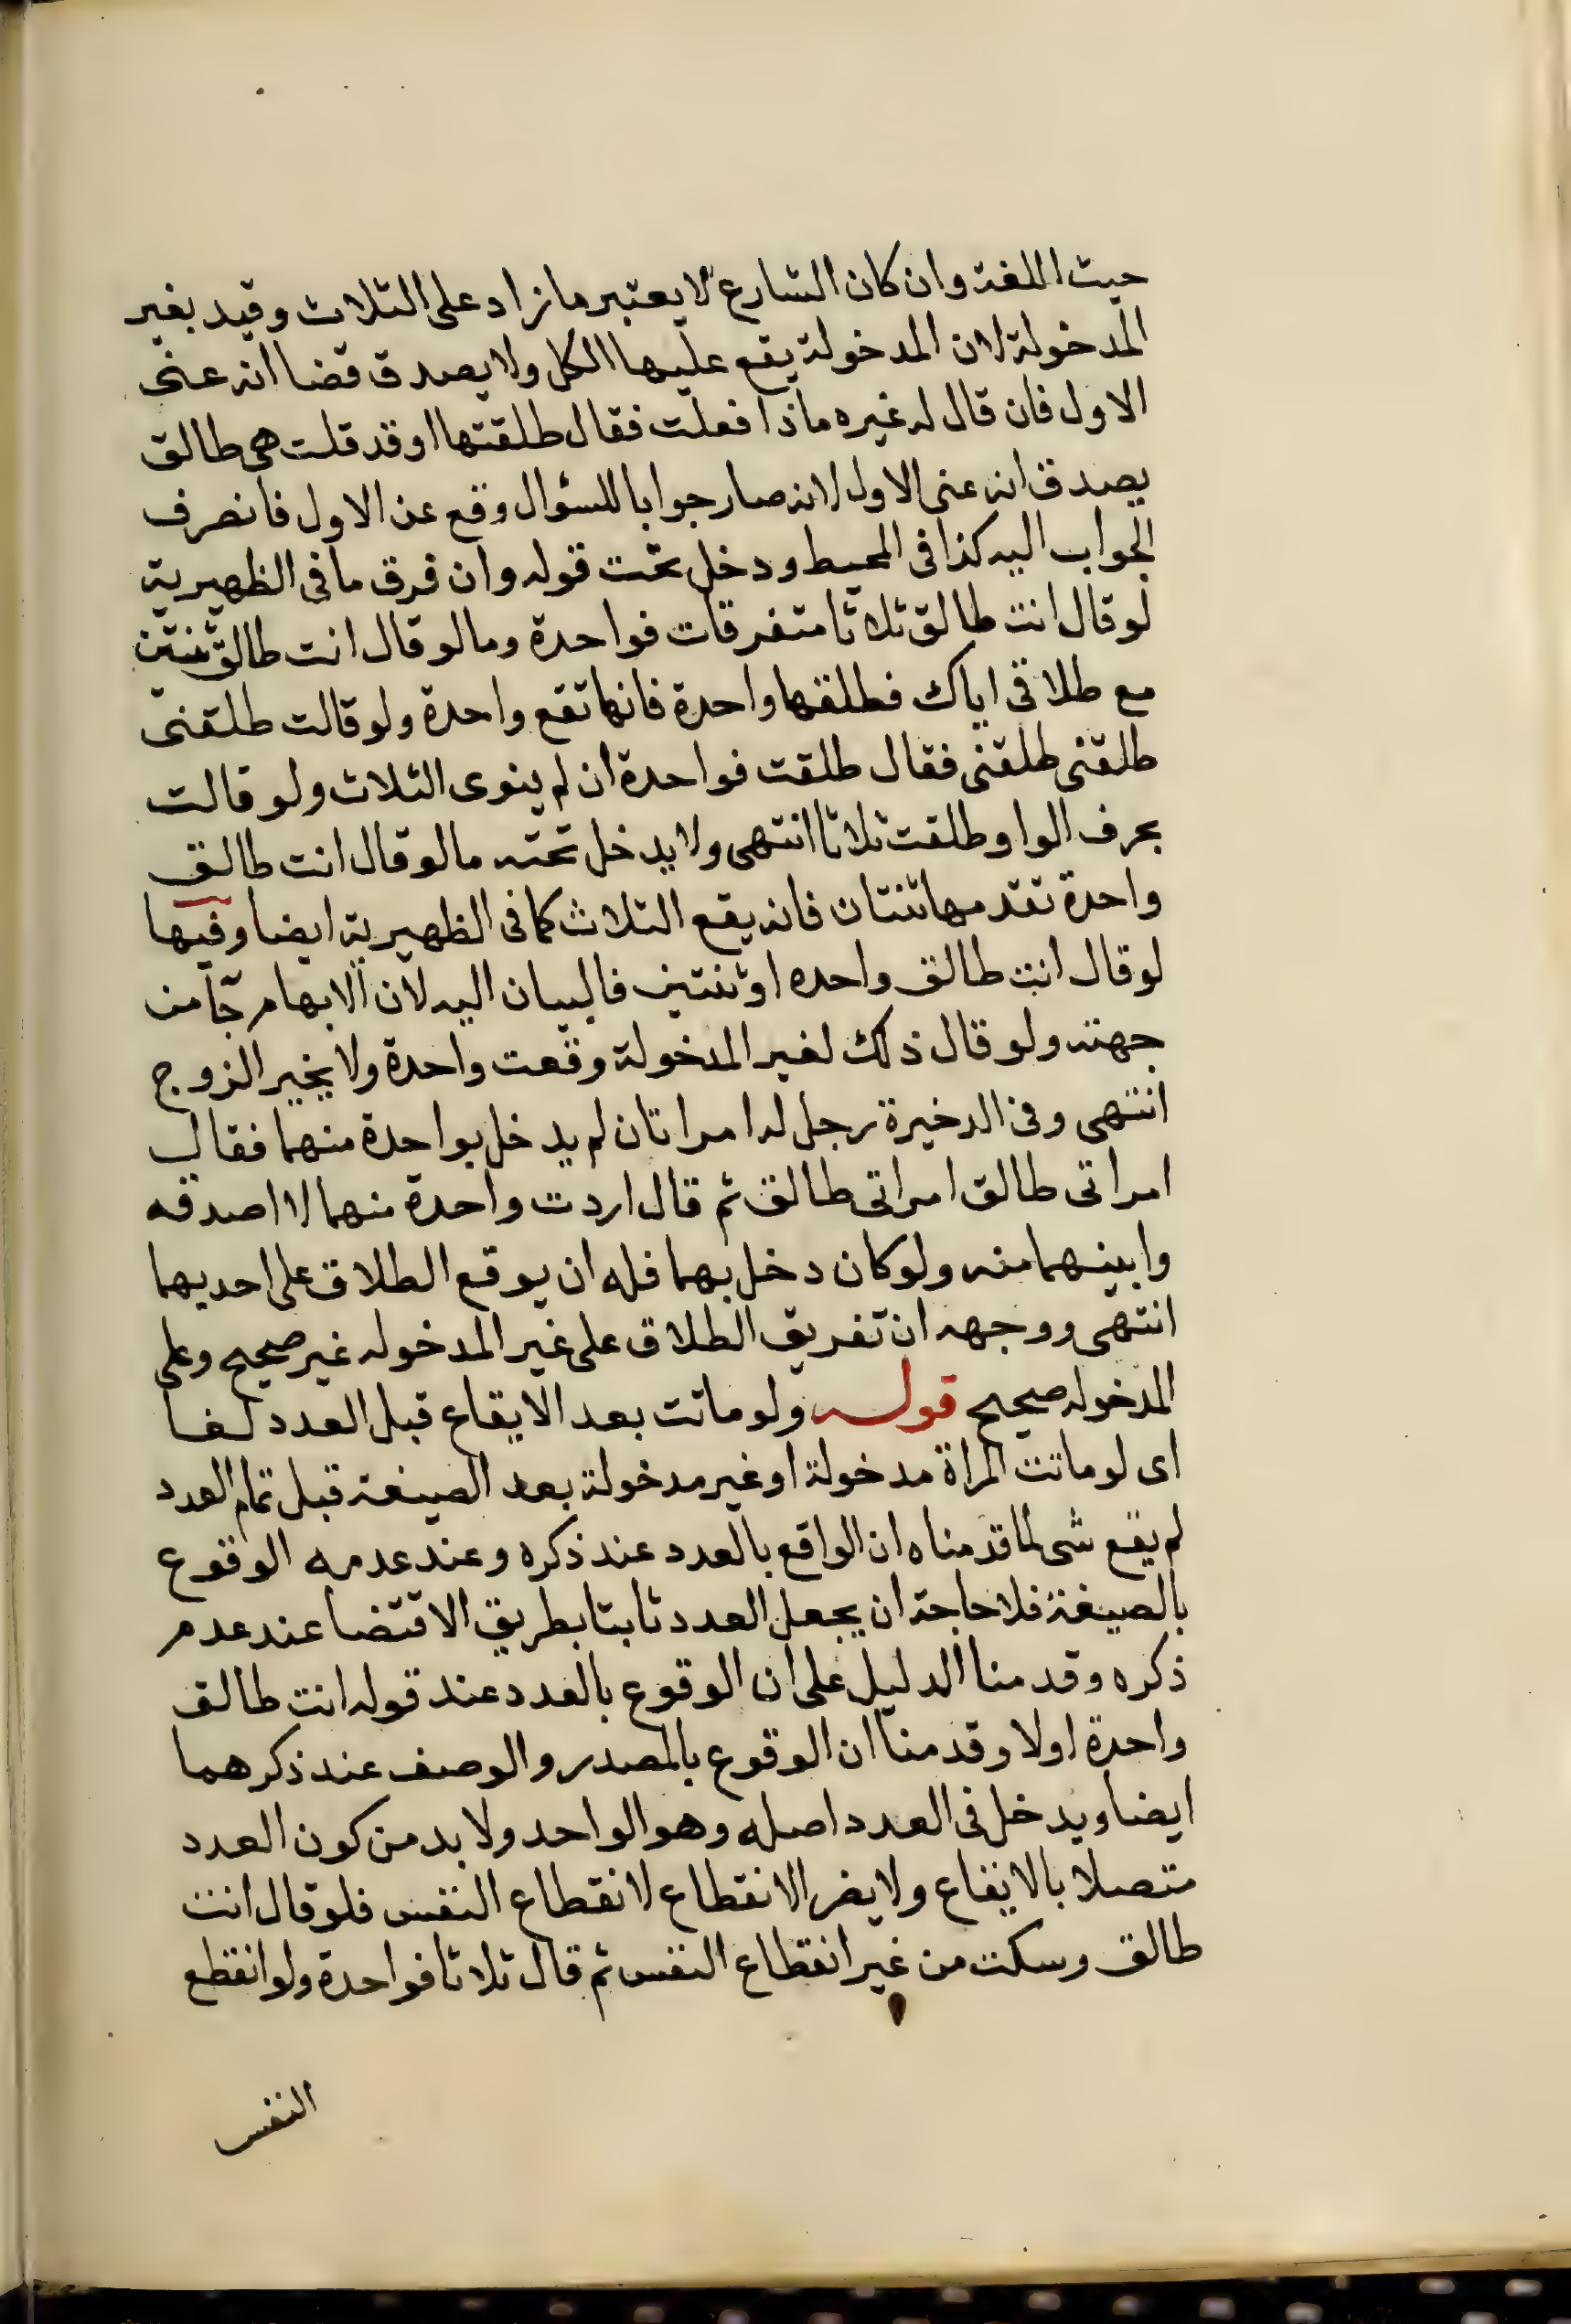 حيث اللغة وان كان الشارع لا يعتبر ما زاد على الثلاث وقيد بغير
المدخولة لان المدخولة يقع عليها الكل ولا يصدق قضا انه عنى
الاول فان قال له غيره ماذا فعلت فقال طلقتها او قد قلت هى طالق
يصدق انه عنى الاول لانه صار جوابا للسؤال وقع عن الاول فانصرف
الجواب اليه كذا فى المحيط ودخل تحت قوله وان فرق ما فى الظهيرية
لو قال انت طالق ثلاثا متفرقات فواحدة وما لو قال انت طالق ثنتين
مع طلاقى اياك فطلقها واحدة فانها تقع واحدة ولو قالت طلقنى
طلقنى طلقنى فقال طلقت فواحدة ان لم ينوى الثلاث ولو قالت
بحرف الواو طلقت ثلاثا انتهى ولا يدخل تحته ما لو قال انت طالق
واحدة تقدمها ثنتان فانه يقع الثلاث كما فى الظهيرية ايضا وفيها
لو قال انت طالق واحده او ثنتين فالبيان اليه لان الابهام جآ من
جهته ولو قال ذلك لغير المدخولة وقعت واحدة ولا يخير الزوج
انتهى وفى الدخيرة رجل له امراتان لم يدخل بواحدة منهما فقال
امراتى طالق امراتى طالق ثم قال اردت واحدة منهما لا اصدقه
وابينهما منه ولو كان دخل بهما فله ان يوقع الطلاق على احديهما
انتهى ووجهه ان تفريق الطلاق على غير المدخوله غير صحيح وعلى
المدخوله صحيح قوله ولو ماتت بعد الايقاع قبل العدد لغا
اى لو ماتت المراة مدخولة او غير مدخولة بعد الصيغة قبل تمام العدد
لم يقع شى لما قدمناه ان الواقع بالعدد عند ذكره وعند عدمه الوقوع
بالصيغة فلا حاجة ان يجعل العدد ثابتا بطريق الاقتضا عند عدم
ذكره وقدمنا الدليل على ان الوقوع بالعدد عند قوله انت طالق
واحدة اولا وقدمنا ان الوقوع بالمصدر والوصف عند ذكرهما
ايضا ويدخل فى العدد اصله وهو الواحد ولا بد من كون العدد
متصلا بالايقاع ولا يضر الانقطاع لانقطاع النفس فلو قال انت
طالق وسكت من غير انقطاع النفس ثم قال ثلاثا فواحدة ولو انقطع
النفس